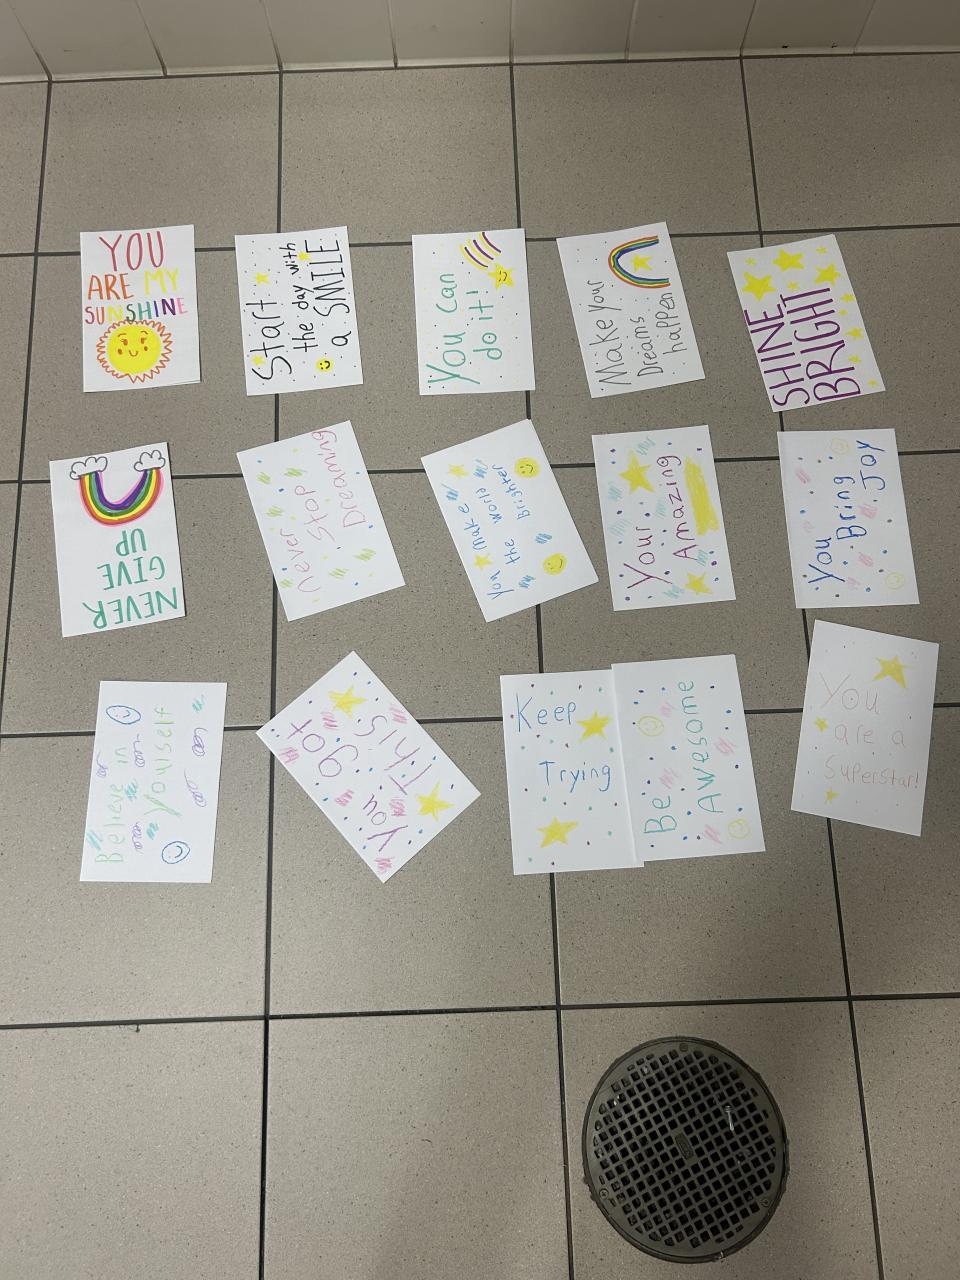 YOU
ARE MY
SUNSHINE
Start
the day with
a SMILE
You can
do it!
Make your
Dreams
happen
SHINE
BRIGHT
NEVER
GIVE
UP
never
Stop
Dreaming
You make
the world
brighter
Your
Amazing
You
Bring
Joy
Believe in
Yourself
You
got
This
Keep
Trying
Be
Awesome
You
are a
Superstar!